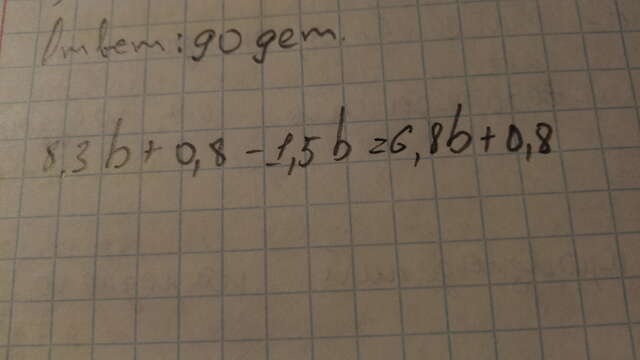 Ответ: 90 дет.
8,3b + 0,8 - 1,5b = 6,8b + 0,8